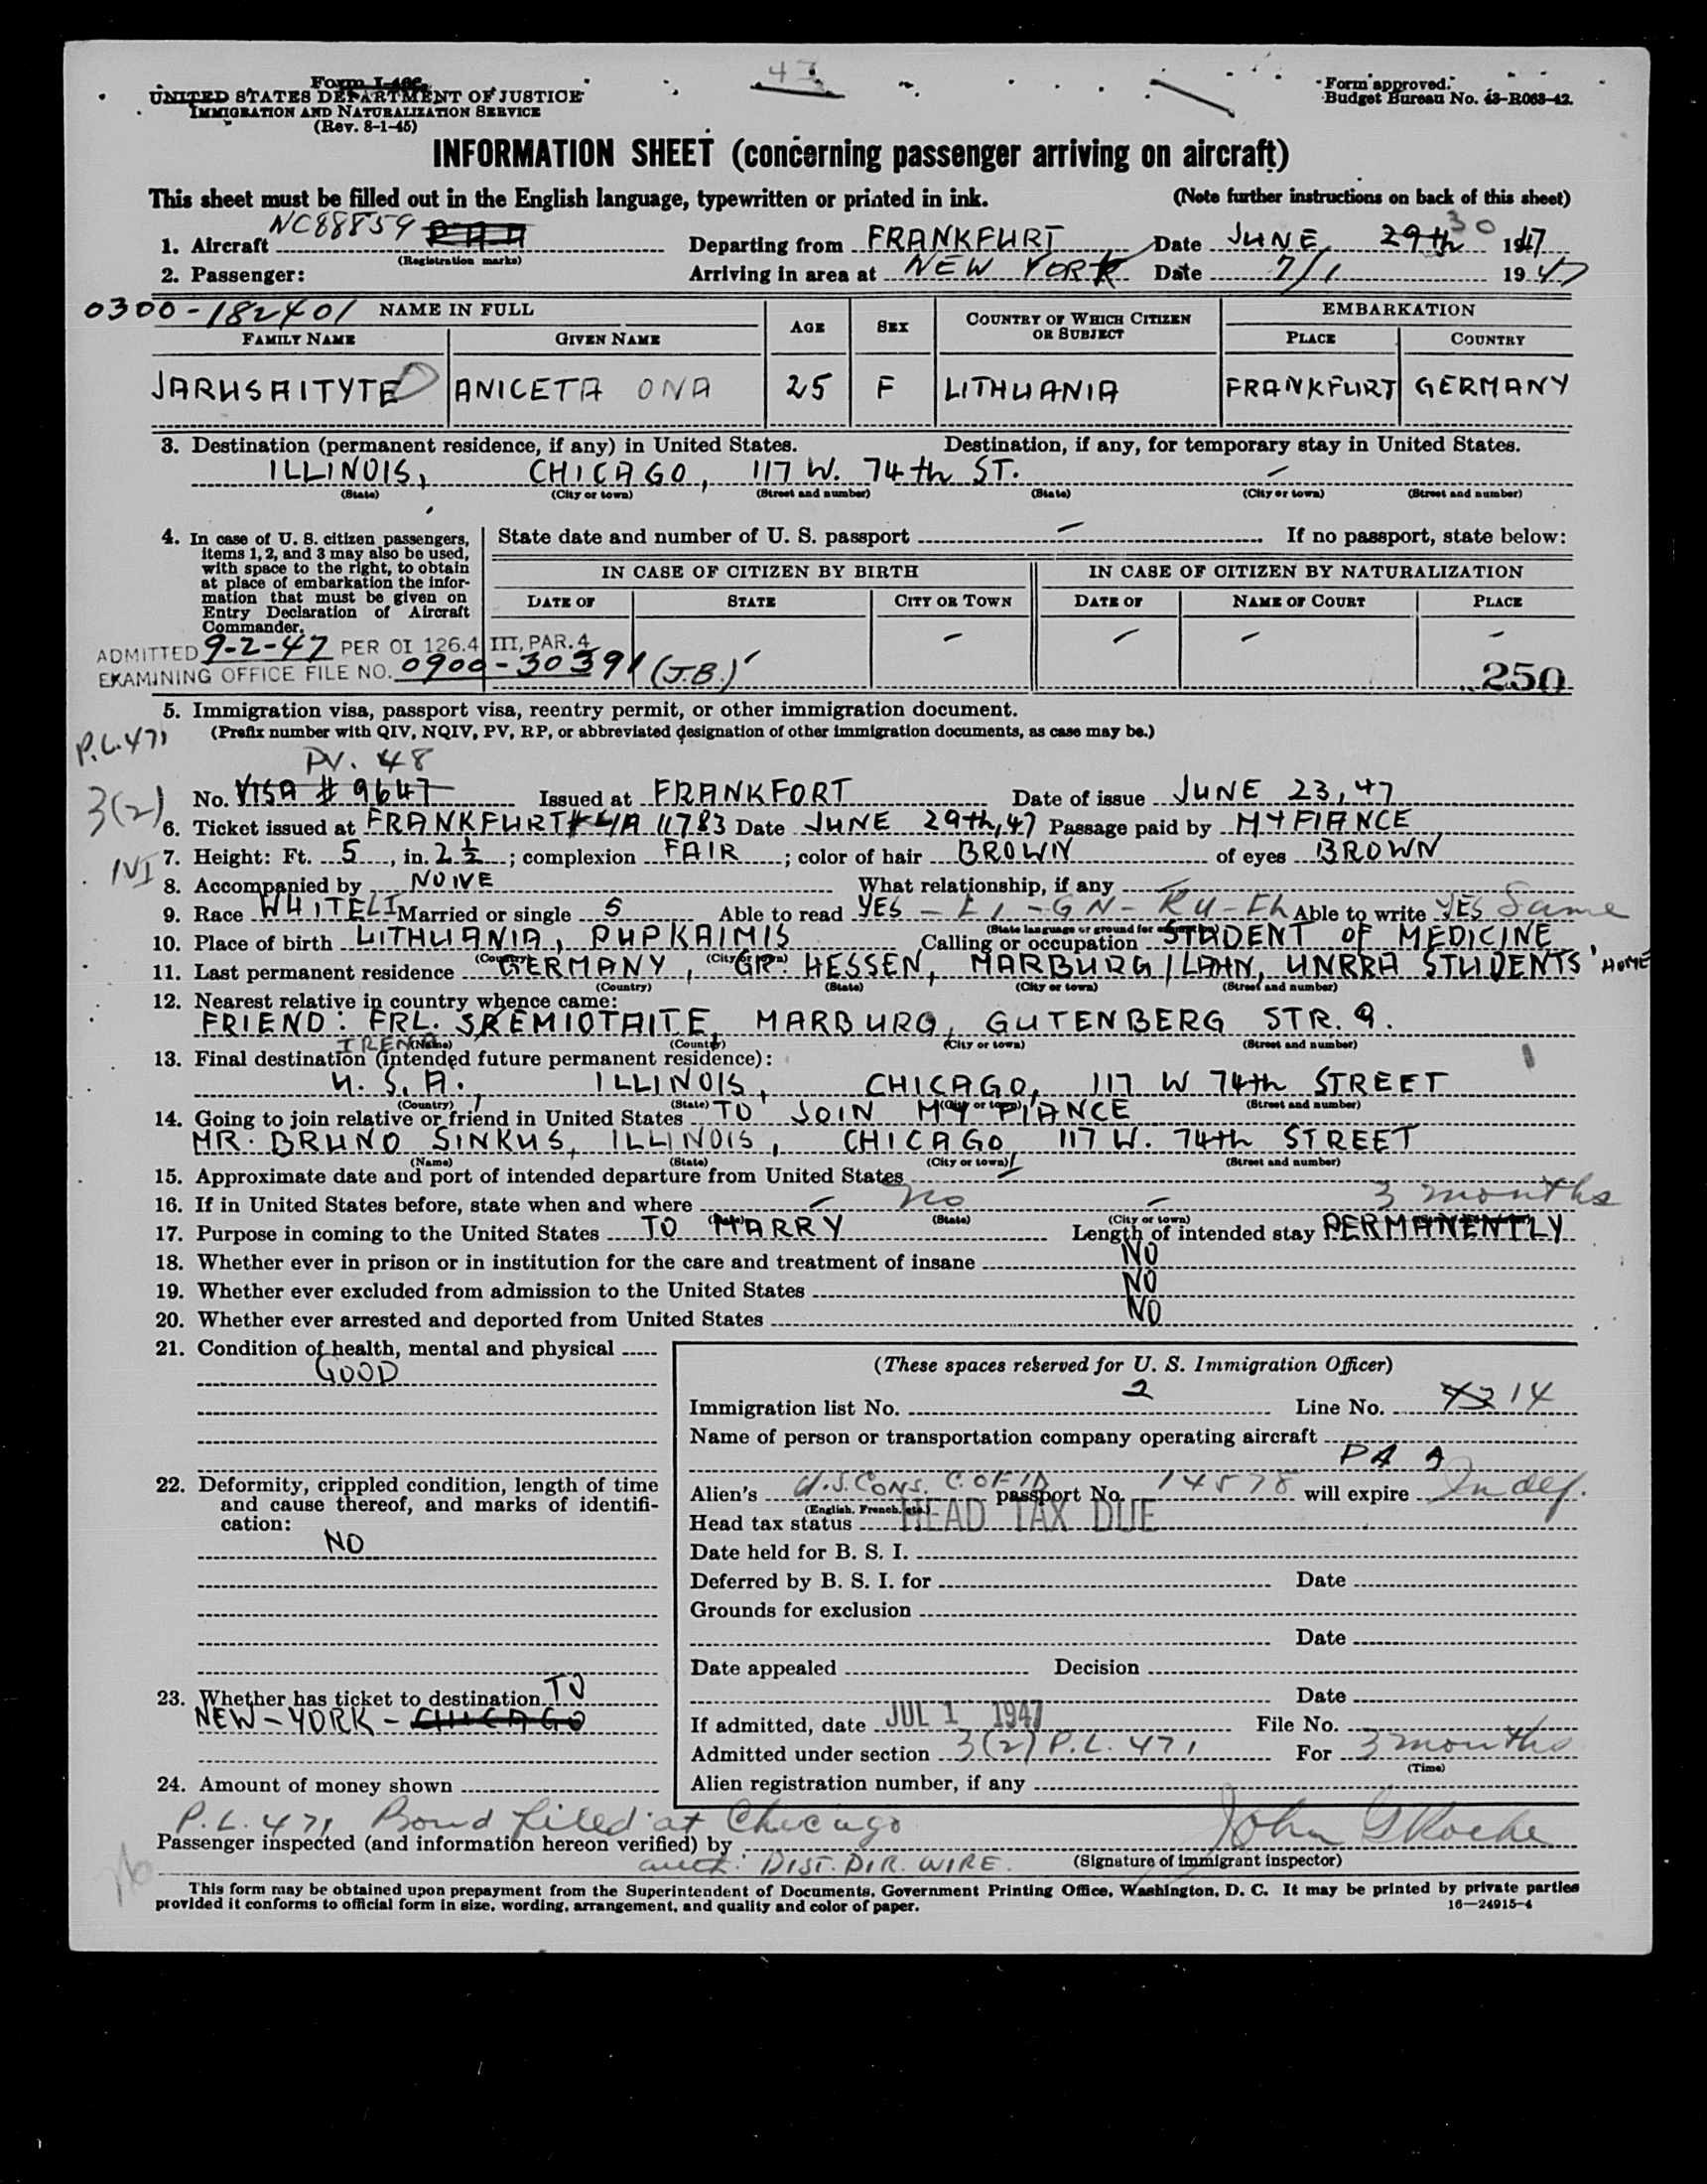 43
Form I-466
UNITED STATES DEPARTMENT OF JUSTICE
IMMIGRATION AND NATURALIZATION SERVICE
(Rev. 8-1-45)
Form approved.
Budget Bureau No. 43-R063-42.
INFORMATION SHEET (concerning passenger arriving on aircraft)
This sheet must be filled out in the English language, typewritten or printed in ink. (Note further instructions on back of this sheet)
1. Aircraft NC88859 PAA Departing from FRANKFURT Date JUNE 29th 30 1947
(Registration marks)
2. Passenger: Arriving in area at NEW YORK Date 7/1 1947
0300-182401 NAME IN FULL AGE SEX COUNTRY OF WHICH CITIZEN OR SUBJECT EMBARKATION
FAMILY NAME GIVEN NAME PLACE COUNTRY
JARUSAITYTE ANICETA ONA 25 F LITHUANIA FRANKFURT GERMANY
3. Destination (permanent residence, if any) in United States. Destination, if any, for temporary stay in United States.
ILLINOIS, CHICAGO, 117 W. 74th ST. –
(State) (City or town) (Street and number) (State) (City or town) (Street and number)
4. In case of U. S. citizen passengers, items 1, 2, and 3 may also be used, with space to the right, to obtain at place of embarkation the information that must be given on Entry Declaration of Aircraft Commander.
State date and number of U. S. passport – If no passport, state below:
IN CASE OF CITIZEN BY BIRTH IN CASE OF CITIZEN BY NATURALIZATION
DATE OF STATE CITY OR TOWN DATE OF NAME OF COURT PLACE
– – – –
ADMITTED 9-2-47 PER OI 126.4 III, PAR. 4
EXAMINING OFFICE FILE NO. 0900-30391 (J.B.) 250
5. Immigration visa, passport visa, reentry permit, or other immigration document.
P.L. 471 (Prefix number with QIV, NQIV, PV, RP, or abbreviated designation of other immigration documents, as case may be.)
PV. 48
No. VISA # 9647 Issued at FRANKFORT Date of issue JUNE 23, 47
3(2)
6. Ticket issued at FRANKFURT 11783 Date JUNE 29th, 47 Passage paid by MY FIANCE
7. Height: Ft. 5, in. 2 1/2; complexion FAIR; color of hair BROWN of eyes BROWN
8. Accompanied by NONE What relationship, if any –
9. Race WHITE LI Married or single S Able to read YES – LI – GN – RU – Eh Able to write YES Same
(State language or ground for exemption)
10. Place of birth LITHUANIA, PUPKAIMIS Calling or occupation STUDENT OF MEDICINE
(Country) (City or town)
11. Last permanent residence GERMANY, GR. HESSEN, MARBURG/LAHN, UNRRA STUDENTS' HOME
(Country) (State) (City or town) (Street and number)
12. Nearest relative in country whence came:
FRIEND: FRL. SREMIOTAITE, MARBURG, GUTENBERG STR. 9.
IRENA (Name) (Country) (City or town) (Street and number)
13. Final destination (intended future permanent residence):
U.S.A., ILLINOIS, CHICAGO, 117 W 74th STREET
(Country) (State) (City or town) (Street and number)
14. Going to join relative or friend in United States TO JOIN MY FIANCE
MR. BRUNO SINKUS, ILLINOIS, CHICAGO 117 W. 74th STREET
(Name) (State) (City or town) (Street and number)
15. Approximate date and port of intended departure from United States –
16. If in United States before, state when and where – no – 3 months
(Date) (State) (City or town)
17. Purpose in coming to the United States TO MARRY Length of intended stay PERMANENTLY
18. Whether ever in prison or in institution for the care and treatment of insane NO
19. Whether ever excluded from admission to the United States NO
20. Whether ever arrested and deported from United States NO
21. Condition of health, mental and physical
GOOD
22. Deformity, crippled condition, length of time and cause thereof, and marks of identification:
NO
23. Whether has ticket to destination TO
NEW-YORK – CHICAGO
24. Amount of money shown
(These spaces reserved for U. S. Immigration Officer)
Immigration list No. 2 Line No. 43 14
Name of person or transportation company operating aircraft
PAA
Alien's U.S. CONS. C. OF ID passport No. 14578 will expire Indef.
(English, French, etc.)
Head tax status HEAD TAX DUE
Date held for B. S. I.
Deferred by B. S. I. for Date
Grounds for exclusion
Date
Date appealed Decision
Date
If admitted, date JUL 1 1947 File No.
Admitted under section 3(2) P.L. 471 For 3 months
(Time)
Alien registration number, if any
P.L. 471 Bond filed at Chicago
Passenger inspected (and information hereon verified) by John G Roche
auth. DIST. DIR. WIRE. (Signature of immigrant inspector)
This form may be obtained upon prepayment from the Superintendent of Documents, Government Printing Office, Washington, D. C. It may be printed by private parties
provided it conforms to official form in size, wording, arrangement, and quality and color of paper. 16—24915-4